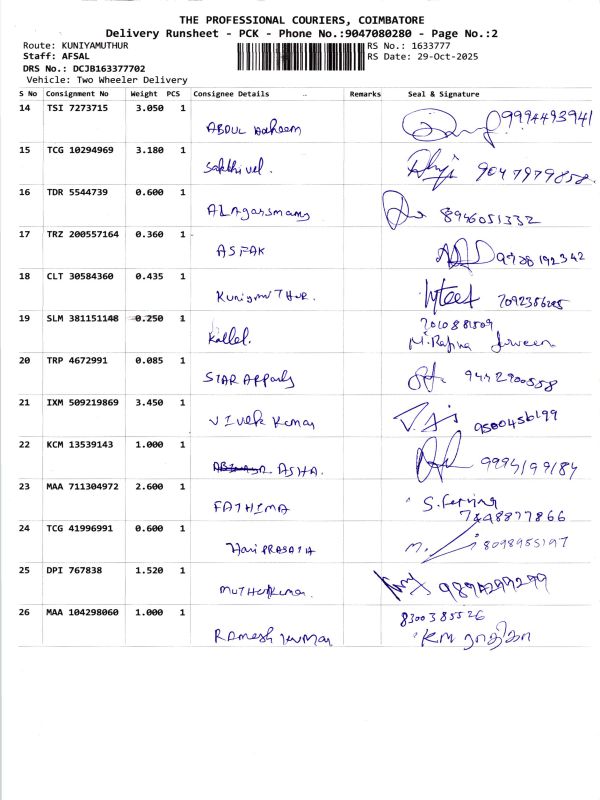 THE PROFESSIONAL COURIERS, COIMBATORE
Delivery Runsheet - PCK - Phone No.:9047080280 - Page No.:2
Route: KUNIYAMUTHUR
RS No.: 1633777
Staff: AFSAL
RS Date: 29-Oct-2025
DRS No.: DCJB163377702
Vehicle: Two Wheeler Delivery
S No Consignment No Weight PCS Consignee Details Remarks Seal & Signature
14 TSI 7273715 3.050 1
ABDUL Hakeem 9994493941
15 TCG 10294969 3.180 1
Sakthivel. 9047979858
16 TDR 5544739 0.600 1
ALAgarsmamy 8946051332
17 TRZ 200557164 0.360 1
ASFAK
18 CLT 30584360 0.435 1
19 SLM 381151148 0.250 1
7010881509
20 TRP 4672991 0.085 1
STAR 9442900558
21 IXM 509219869 3.450 1
Vivek Kumar 9500456199
22 KCM 13539143 1.000 1
ASHA. 9994199184
23 MAA 711304972 2.600 1
FATHIMA
24 TCG 41996991 0.600 1
Hari PRASATH M. 8098955197
25 DPI 767838 1.520 1
9894299299
26 MAA 104298060 1.000 1
8300385526
Ramesh kumar KM ராதிகா